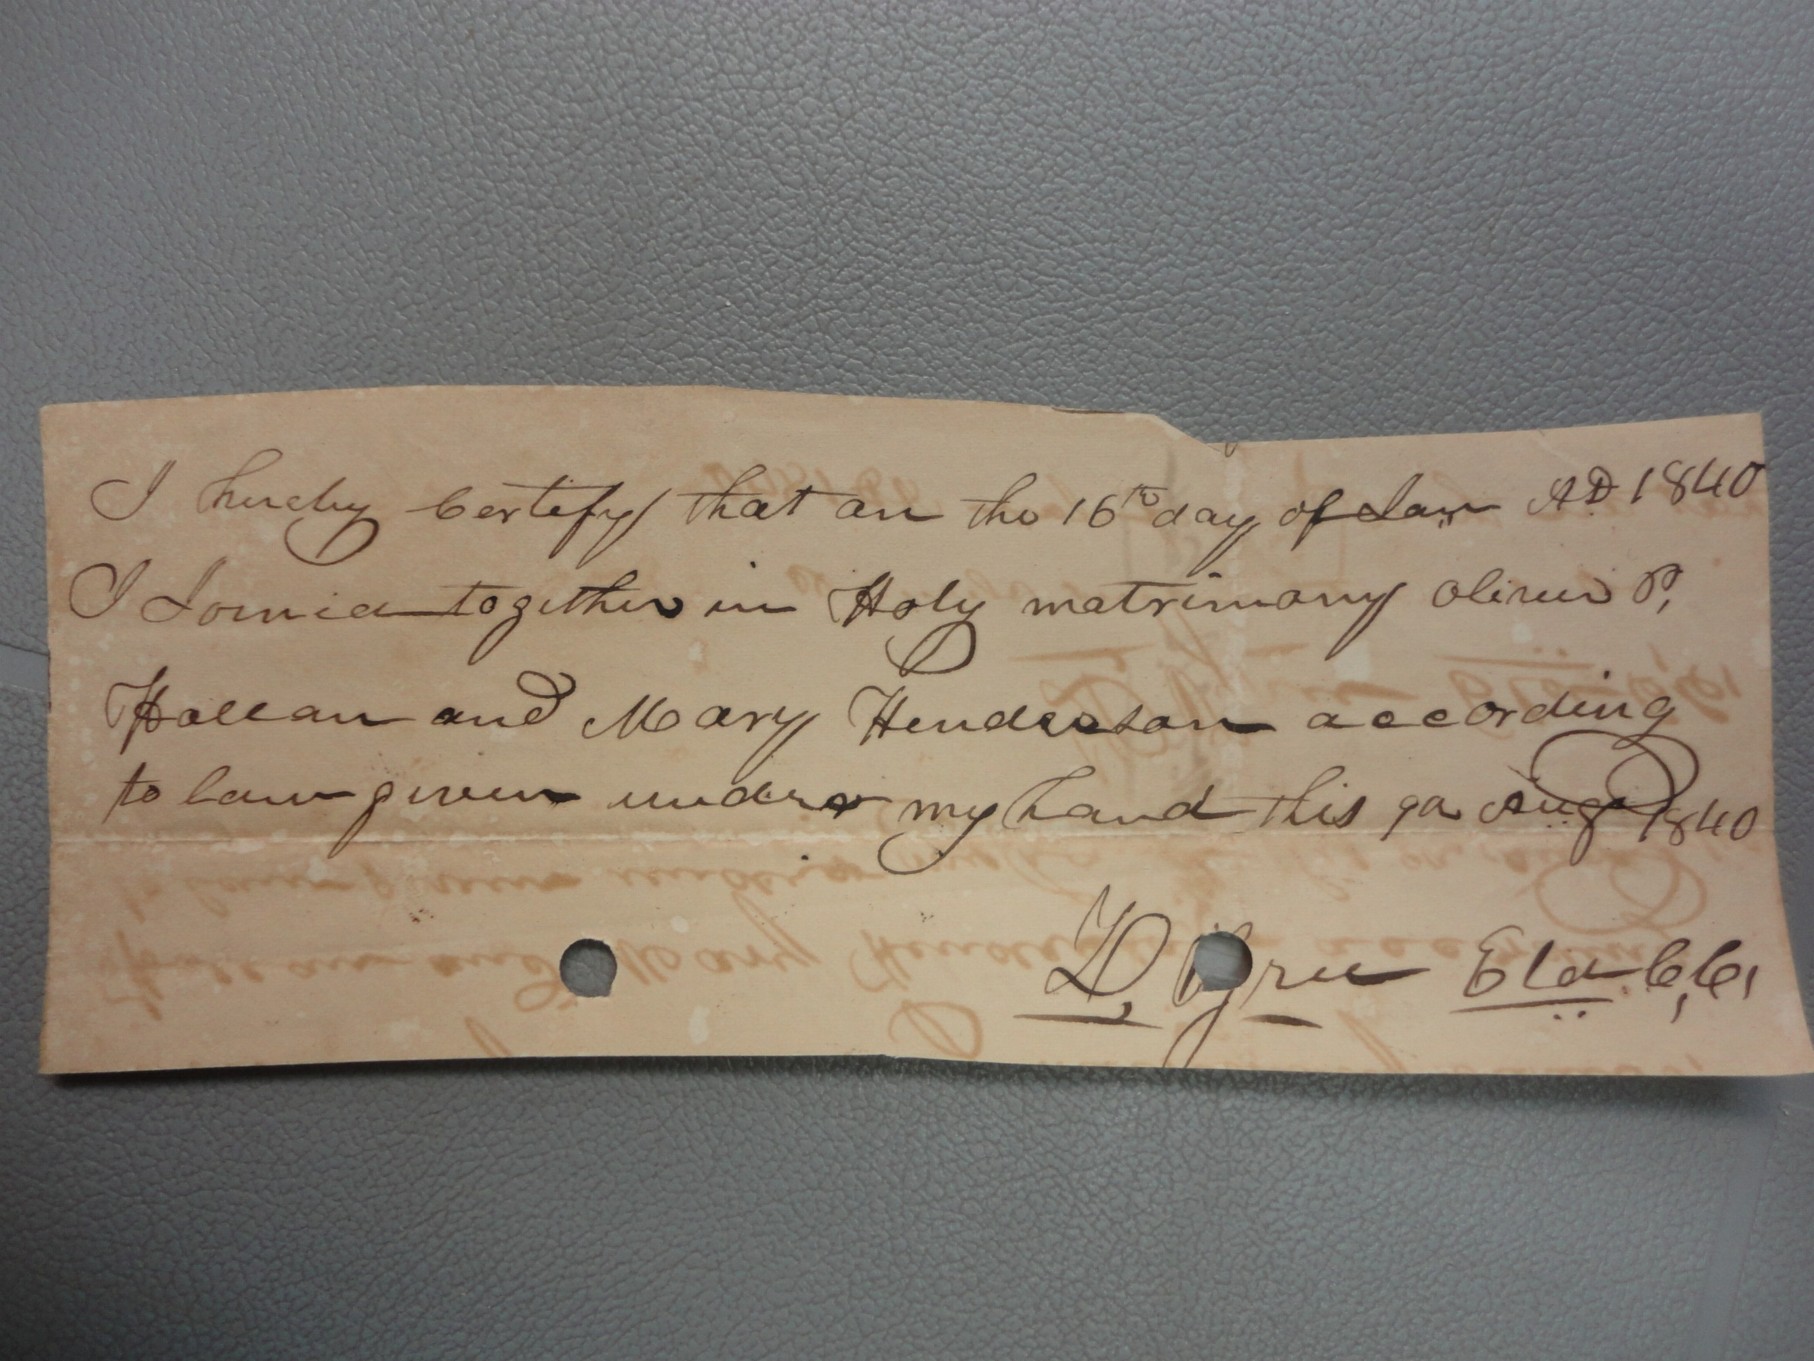 I hereby certify that on the 16th day of Jan AD 1840
I Joined together in Holy matrimony oliver P,
Hallan and Mary Henderson according
to law given under my hand this 9th Aug 1840
D. Eld C, C,